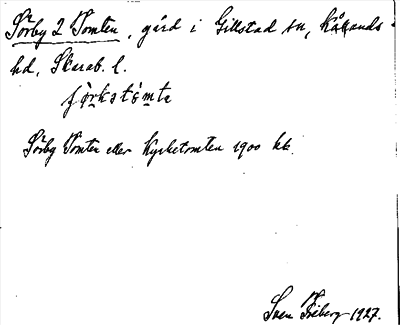 Sörby 2 Tomten, gård i Gillstad sn, Kålands
hd, Skarab. l.
Sörby Tomten eller Kyrketomten 1900 kk.
Sven Friberg 1927.